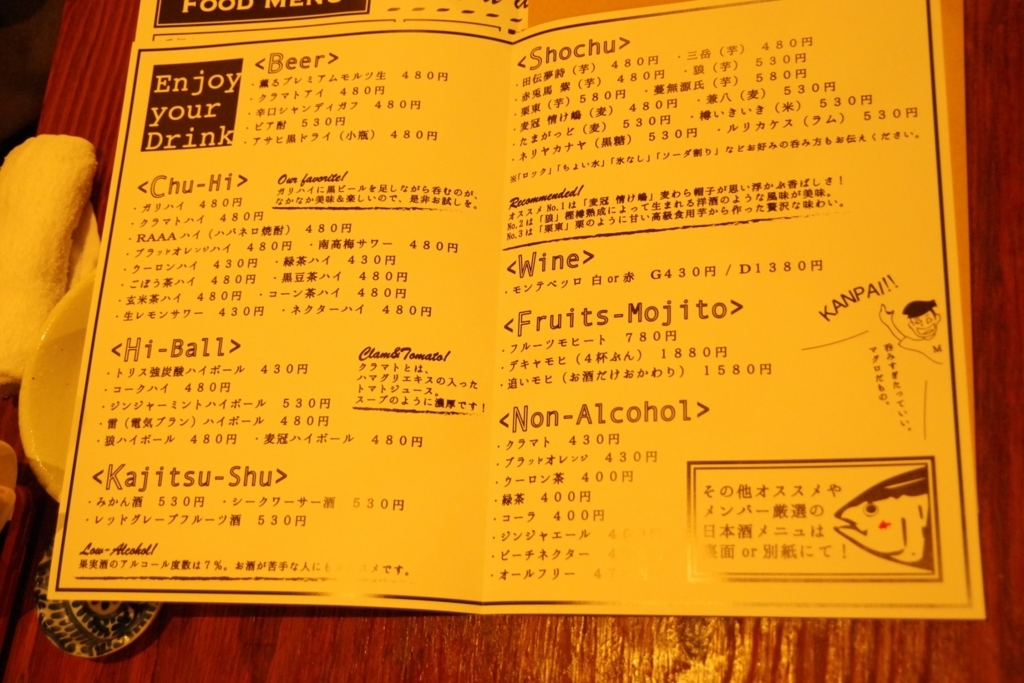 FOOD MENU
Enjoy
your
Drink
<Beer>
・薫るプレミアムモルツ生 480円
・クラマトアイ 480円
・辛口シャンディガフ 480円
・ビア酎 530円
・アサヒ黒ドライ(小瓶) 480円
<Chu-Hi>
・ガリハイ 480円
・クラマトハイ 480円
・RAAAハイ(ハバネロ焼酎) 480円
・ブラッドオレンジハイ 480円 ・南高梅サワー 480円
・ウーロンハイ 430円 ・緑茶ハイ 430円
・ごぼう茶ハイ 480円 ・黒豆茶ハイ 480円
・玄米茶ハイ 480円 ・コーン茶ハイ 480円
・生レモンサワー 430円 ・ネクターハイ 480円
Our favorite!
ガリハイに黒ビールを足しながら呑むのが、
なかなか美味&楽しいので、是非お試しを。
<Hi-Ball>
・トリス強炭酸ハイボール 430円
・コークハイ 480円
・ジンジャーミントハイボール 530円
・雷(電気ブラン)ハイボール 480円
・狼ハイボール 480円 ・麦冠ハイボール 480円
Clam&Tomato!
クラマトとは、
ハマグリエキスの入った
トマトジュース。
スープのように濃厚です!
<Kajitsu-Shu>
・みかん酒 530円 ・シークワーサー酒 530円
・レッドグレープフルーツ酒 530円
Low-Alcohol!
果実酒のアルコール度数は7%。お酒が苦手な人にも スメです。
<Shochu>
・田伝夢詩(芋) 480円 ・三岳(芋) 480円
・赤兎馬 紫(芋) 480円 ・狼(芋) 530円
・栗東(芋) 580円 ・蔓無源氏(芋) 580円
・麦冠 情け嶋(麦) 480円 ・兼八(麦) 530円
・たまがっど(麦) 530円 ・樽いきいき(米) 530円
・ネリヤカナヤ(黒糖) 530円 ・ルリカケス(ラム) 530円
※「ロック」「ちょい水」「氷なし」「ソーダ割り」などお好みの呑み方もお伝えください。
Recommended!
オススメNo.1は「麦冠 情け嶋」麦わら帽子が思い浮かぶ香ばしさ!
No.2は「狼」樫樽熟成によって生まれる洋酒のような風味が美味。
No.3は「栗東」栗のように甘い高級食用芋から作った贅沢な味わい。
<Wine>
・モンテベッロ 白 or 赤 G430円 / D1380円
<Fruits-Mojito>
・フルーツモヒート 780円
・デキャモヒ(4杯ぶん) 1880円
・追いモヒ(お酒だけおかわり) 1580円
KANPAI!!
呑みすぎたっていい、
マグロだもの。
M
<Non-Alcohol>
・クラマト 430円
・ブラッドオレンジ 430円
・ウーロン茶 400円
・緑茶 400円
・コーラ 400円
・ジンジャエール 4 円
・ピーチネクター 4
・オールフリー 47
その他オススメや
メンバー厳選の
日本酒メニューは
裏面 or 別紙にて!